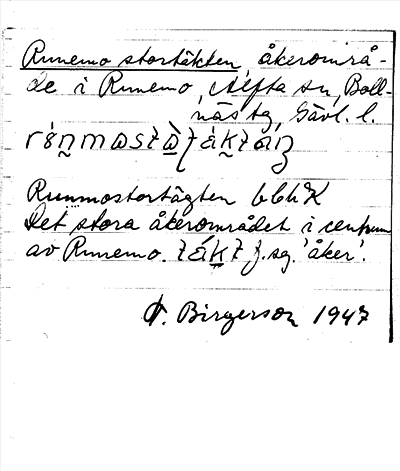 Runemo stortäkten, åkerområ-
de i Runemo, Alfta sn, Boll-
näs tg, Gävl. l.
Runmostortägten bbhK
Det stora åkerområdet i centrum
av Runemo. f. sg. 'åker'.
O. Birgerson 1947